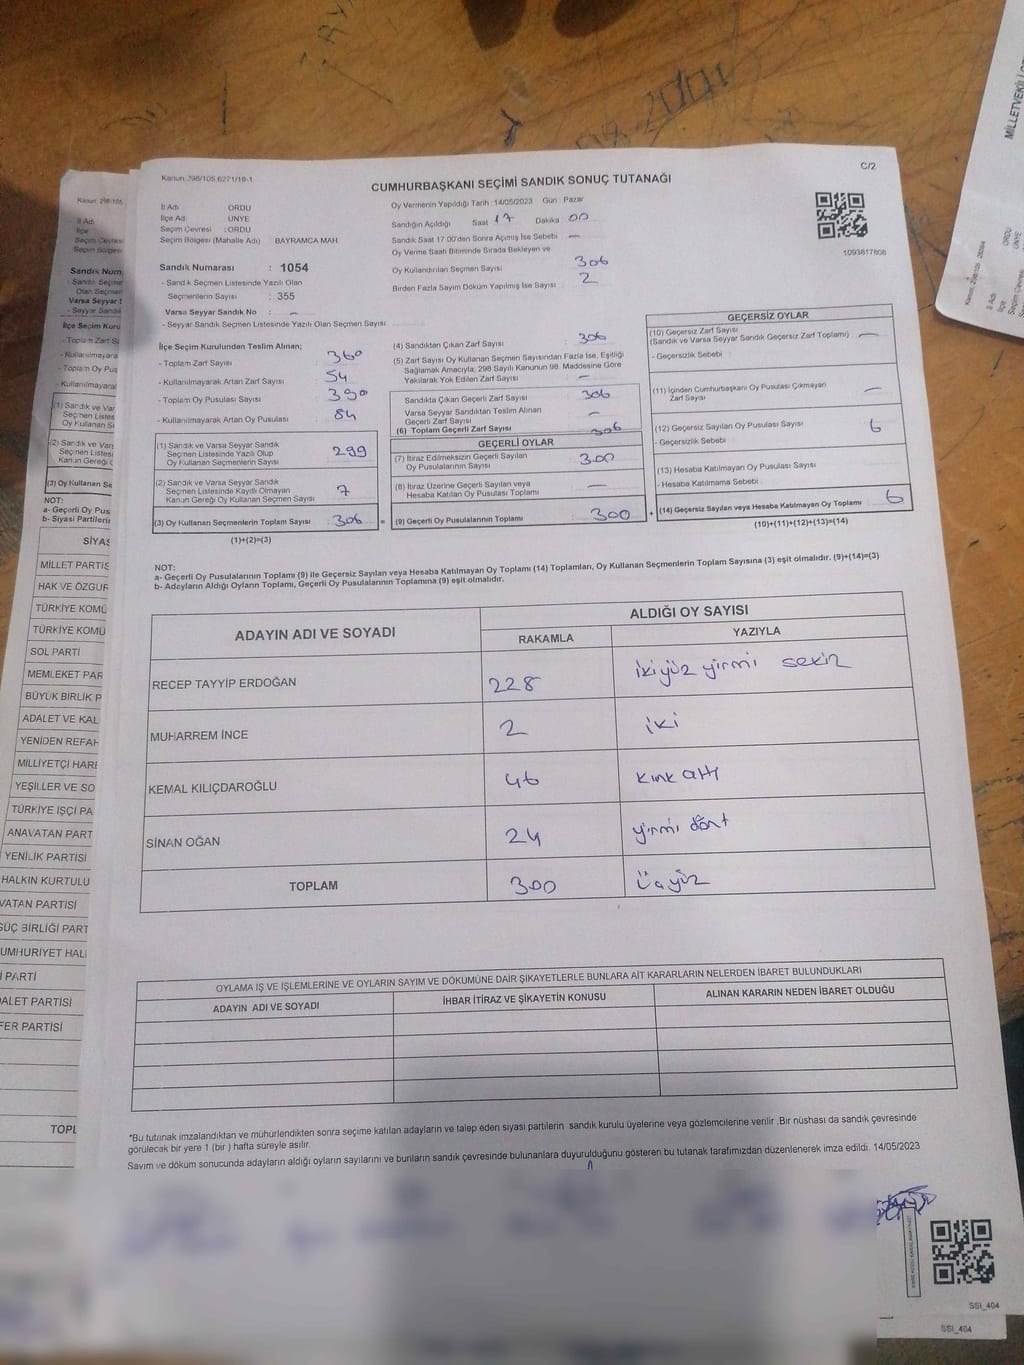 Kanun: 298/105,6271/18-1
C/2
CUMHURBAŞKANI SEÇİMİ SANDIK SONUÇ TUTANAĞI
İl Adı ORDU
İlçe Adı ÜNYE
Seçim Çevresi : ORDU
Seçim Bölgesi (Mahalle Adı) BAYRAMCA MAH.
Oy Vermenin Yapıldığı Tarih 14/05/2023 Gün Pazar
Sandığın Açıldığı Saat 17 Dakika 00
Sandık Saat 17.00'den Sonra Açılmış İse Sebebi —
Oy Verme Saati Bitiminde Sırada Bekleyen ve
Oy Kullandırılan Seçmen Sayısı 306
Birden Fazla Sayım Döküm Yapılmış İse Sayısı 2
1093817808
Sandık Numarası : 1054
- Sandık Seçmen Listesinde Yazılı Olan
Seçmenlerin Sayısı : 355
Varsa Seyyar Sandık No : —
- Seyyar Sandık Seçmen Listesinde Yazılı Olan Seçmen Sayısı
İlçe Seçim Kurulundan Teslim Alınan;
- Toplam Zarf Sayısı 360
- Kullanılmayarak Artan Zarf Sayısı 54
- Toplam Oy Pusulası Sayısı 390
- Kullanılmayarak Artan Oy Pusulası 84
(1) Sandık ve Varsa Seyyar Sandık
Seçmen Listesinde Yazılı Olup
Oy Kullanan Seçmenlerin Sayısı 299
(2) Sandık ve Varsa Seyyar Sandık
Seçmen Listesinde Kayıtlı Olmayan
Kanun Gereği Oy Kullanan Seçmen Sayısı 7
(3) Oy Kullanan Seçmenlerin Toplam Sayısı 306 =
(1)+(2)=(3)
(4) Sandıktan Çıkan Zarf Sayısı 306
(5) Zarf Sayısı Oy Kullanan Seçmen Sayısından Fazla İse, Eşitliği
Sağlamak Amacıyla, 298 Sayılı Kanunun 98. Maddesine Göre
Yakılarak Yok Edilen Zarf Sayısı —
Sandıkta Çıkan Geçerli Zarf Sayısı 306
Varsa Seyyar Sandıktan Teslim Alınan
Geçerli Zarf Sayısı —
(6) Toplam Geçerli Zarf Sayısı 306
GEÇERLİ OYLAR
(7) İtiraz Edilmeksizin Geçerli Sayılan
Oy Pusulalarının Sayısı 300
(8) İtiraz Üzerine Geçerli Sayılan veya
Hesaba Katılan Oy Pusulası Toplamı —
(9) Geçerli Oy Pusulalarının Toplamı 300 +
GEÇERSİZ OYLAR
(10) Geçersiz Zarf Sayısı
(Sandık ve Varsa Seyyar Sandık Geçersiz Zarf Toplamı) —
- Geçersizlik Sebebi
(11) İçinden Cumhurbaşkanı Oy Pusulası Çıkmayan
Zarf Sayısı —
(12) Geçersiz Sayılan Oy Pusulası Sayısı 6
- Geçersizlik Sebebi
(13) Hesaba Katılmayan Oy Pusulası Sayısı
- Hesaba Katılmama Sebebi
(14) Geçersiz Sayılan veya Hesaba Katılmayan Oy Toplamı 6
(10)+(11)+(12)+(13)=(14)
NOT:
a- Geçerli Oy Pusulalarının Toplamı (9) ile Geçersiz Sayılan veya Hesaba Katılmayan Oy Toplamı (14) Toplamları, Oy Kullanan Seçmenlerin Toplam Sayısına (3) eşit olmalıdır. (9)+(14)=(3)
b- Adayların Aldığı Oyların Toplamı, Geçerli Oy Pusulalarının Toplamına (9) eşit olmalıdır.
ADAYIN ADI VE SOYADI
ALDIĞI OY SAYISI
RAKAMLA YAZIYLA
RECEP TAYYİP ERDOĞAN 228 ikiyüz yirmi sekiz
MUHARREM İNCE 2 iki
KEMAL KILIÇDAROĞLU 46 kırk altı
SİNAN OĞAN 24 yirmi dört
TOPLAM 300 üçyüz
OYLAMA İŞ VE İŞLEMLERİNE VE OYLARIN SAYIM VE DÖKÜMÜNE DAİR ŞİKAYETLERLE BUNLARA AİT KARARLARIN NELERDEN İBARET BULUNDUKLARI
ADAYIN ADI VE SOYADI İHBAR İTİRAZ VE ŞİKAYETİN KONUSU ALINAN KARARIN NEDEN İBARET OLDUĞU
*Bu tutanak imzalandıktan ve mühürlendikten sonra seçime katılan adayların ve talep eden siyasi partilerin sandık kurulu üyelerine veya gözlemcilerine verilir .Bir nüshası da sandık çevresinde
görülecek bir yere 1 (bir ) hafta süreyle asılır.
Sayım ve döküm sonucunda adayların aldığı oyların sayılarını ve bunların sandık çevresinde bulunanlara duyurulduğunu gösteren bu tutanak tarafımızdan düzenlenerek imza edildi. 14/05/2023
SSİ_404
SSİ_404
Kanun: 298/105
İl Adı
İlçe
Seçim Çevresi
Seçim Bölgesi
Sandık Num
- Sandık Seçme
Olan Seçmen
Varsa Seyyar S
- Seyyar Sandı
İlçe Seçim Kuru
- Toplam Zarf Sa
- Kullanılmayara
- Toplam Oy Pus
- Kullanılmayara
(1) Sandık ve Var
Seçmen Listes
Oy Kullanan S
(2) Sandık ve Var
Seçmen Listes
Kanun Gereği O
(3) Oy Kullanan Se
NOT:
a- Geçerli Oy Pus
b- Siyasi Partilerin
SİYAS
MİLLET PARTİS
HAK VE ÖZGÜR
TÜRKİYE KOMÜ
TÜRKİYE KOMÜ
SOL PARTİ
MEMLEKET PAR
BÜYÜK BİRLİK P
ADALET VE KAL
YENİDEN REFAH
MİLLİYETÇİ HARE
YEŞİLLER VE SO
TÜRKİYE İŞÇİ PA
ANAVATAN PART
YENİLİK PARTİSİ
HALKIN KURTULU
VATAN PARTİSİ
GÜÇ BİRLİĞİ PART
CUMHURİYET HAL
İ PARTİ
ALET PARTİSİ
FER PARTİSİ
TOPL
MİLLETVEKİLİ
ORDU
ÜNYE
İl Adı
İlçe Adı